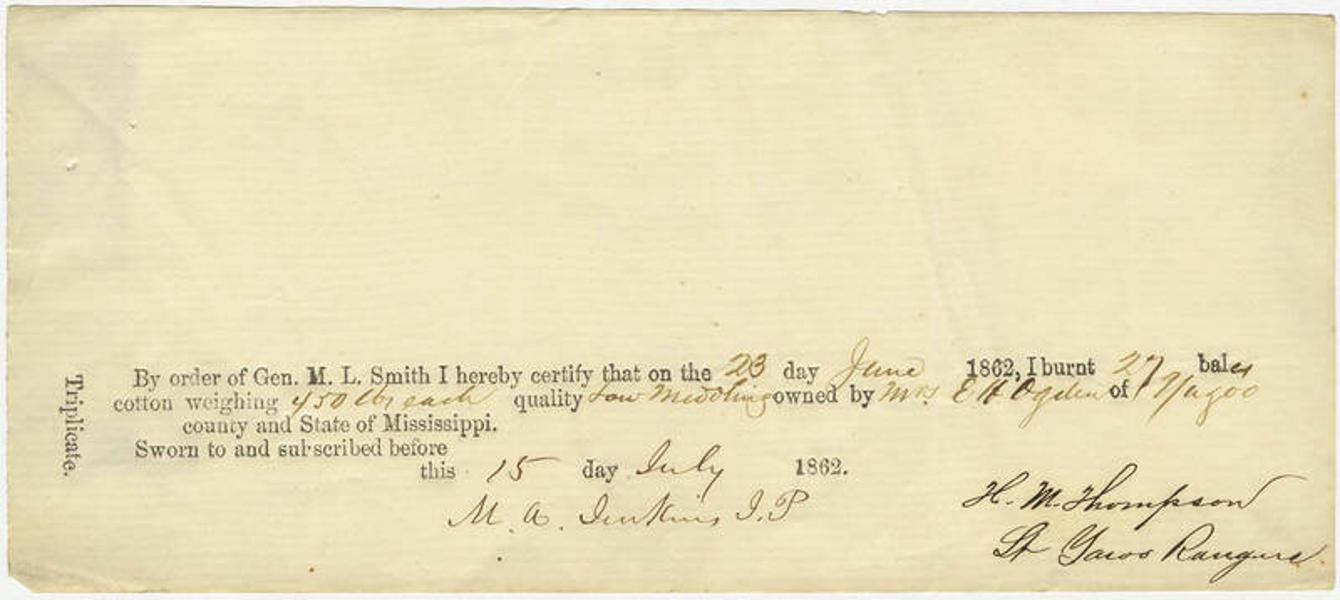 By order of Gen. M. L. Smith I hereby certify that on the 23 day June 1862, I burnt 27 bales
cotton weighing 450 lbs each quality Low Middling owned by Mrs E H Ogden of Yazoo
county and State of Mississippi.
Sworn to and subscribed before
this 15 day July 1862.
M. A. Jenkins J.P
H. M. Thompson
Lt Yazoo Rangers
Triplicate.